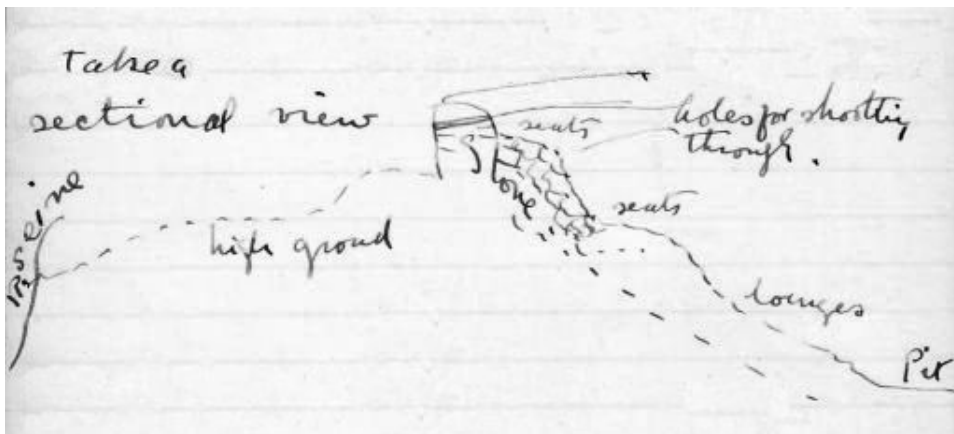 Take a
sectional view
seats
holes for shooting
through.
Stone
seats
R. Seine
high ground
lounges
Pit